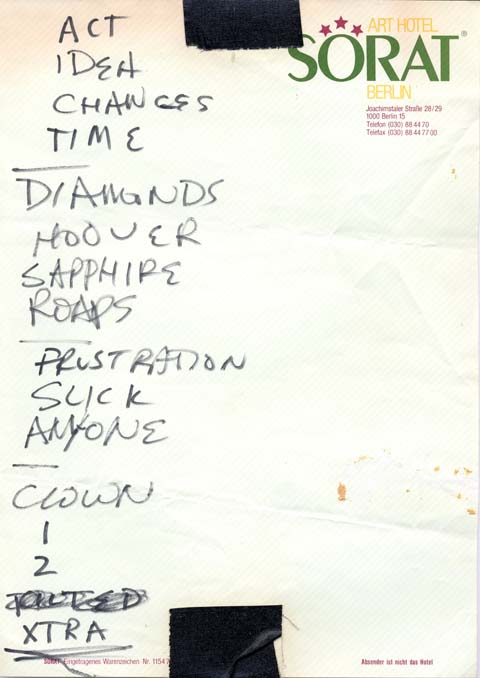 ACT
IDEA
CHANGES
TIME
DIAMONDS
HOOVER
SAPPHIRE
ROADS
FRUSTRATION
SLICK
ANYONE
CLOWN
1
2
XTRA
ART HOTEL
SORAT®
BERLIN
Joachimstaler Straße 28/29
1000 Berlin 15
Telefon (030) 88 44 70
Telefax (030) 88 44 77 00
SORAT Eingetragenes Warenzeichen Nr. 1154
Absender ist nicht das Hotel